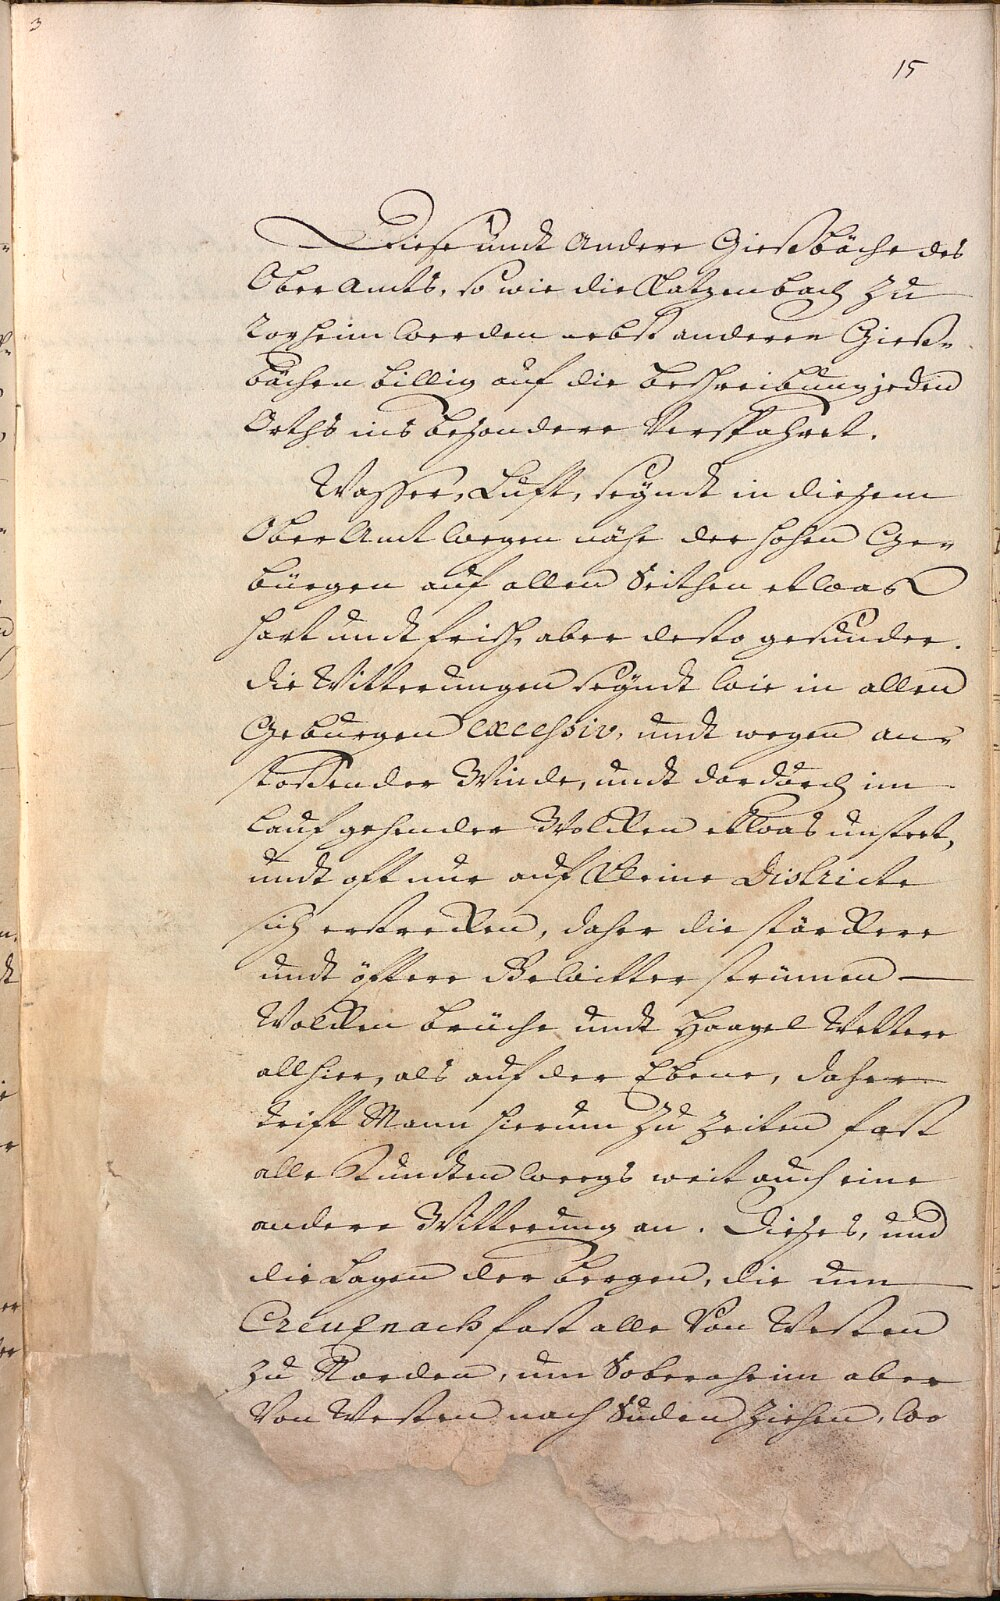 15
Diese undt andere Giesbäche des
Ober Amts, so wie die Katzenbach zu
Roxheim werden nebst anderen Gies-
bächen billig auf die beschreibung jeden
Orths ins besondere Verspahret.
Wasser, Luft, seyndt in diesem
Ober Amt wegen nähe der hohen Ge-
bürgen auf allen Seithen etwas
hart undt frisch, aber desto gesunder.
die Witterungen seyndt wie in allen
Geburgen excessiv, undt wegen an-
stossender Winde, undt dardurch im
Lauf gehender Wolcken etwas unstet,
undt oft nur auf kleine Districte
sich erstrecken, daher die stärckere
undt öftere Gewitter strümen —
Wolcken brüche undt Haagel Wetter
allhier, als auf der Ebene, daher
trift Mann hierum zu zeiten fast
alle Stundten weegs weit auch eine
andere Witterung an. Dieses, und
die Lagen der bergen, die um
Creutznach fast alle Von Westen
zu Norden, um Sobernheim aber
Von Westen nach Süden ziehen, wo